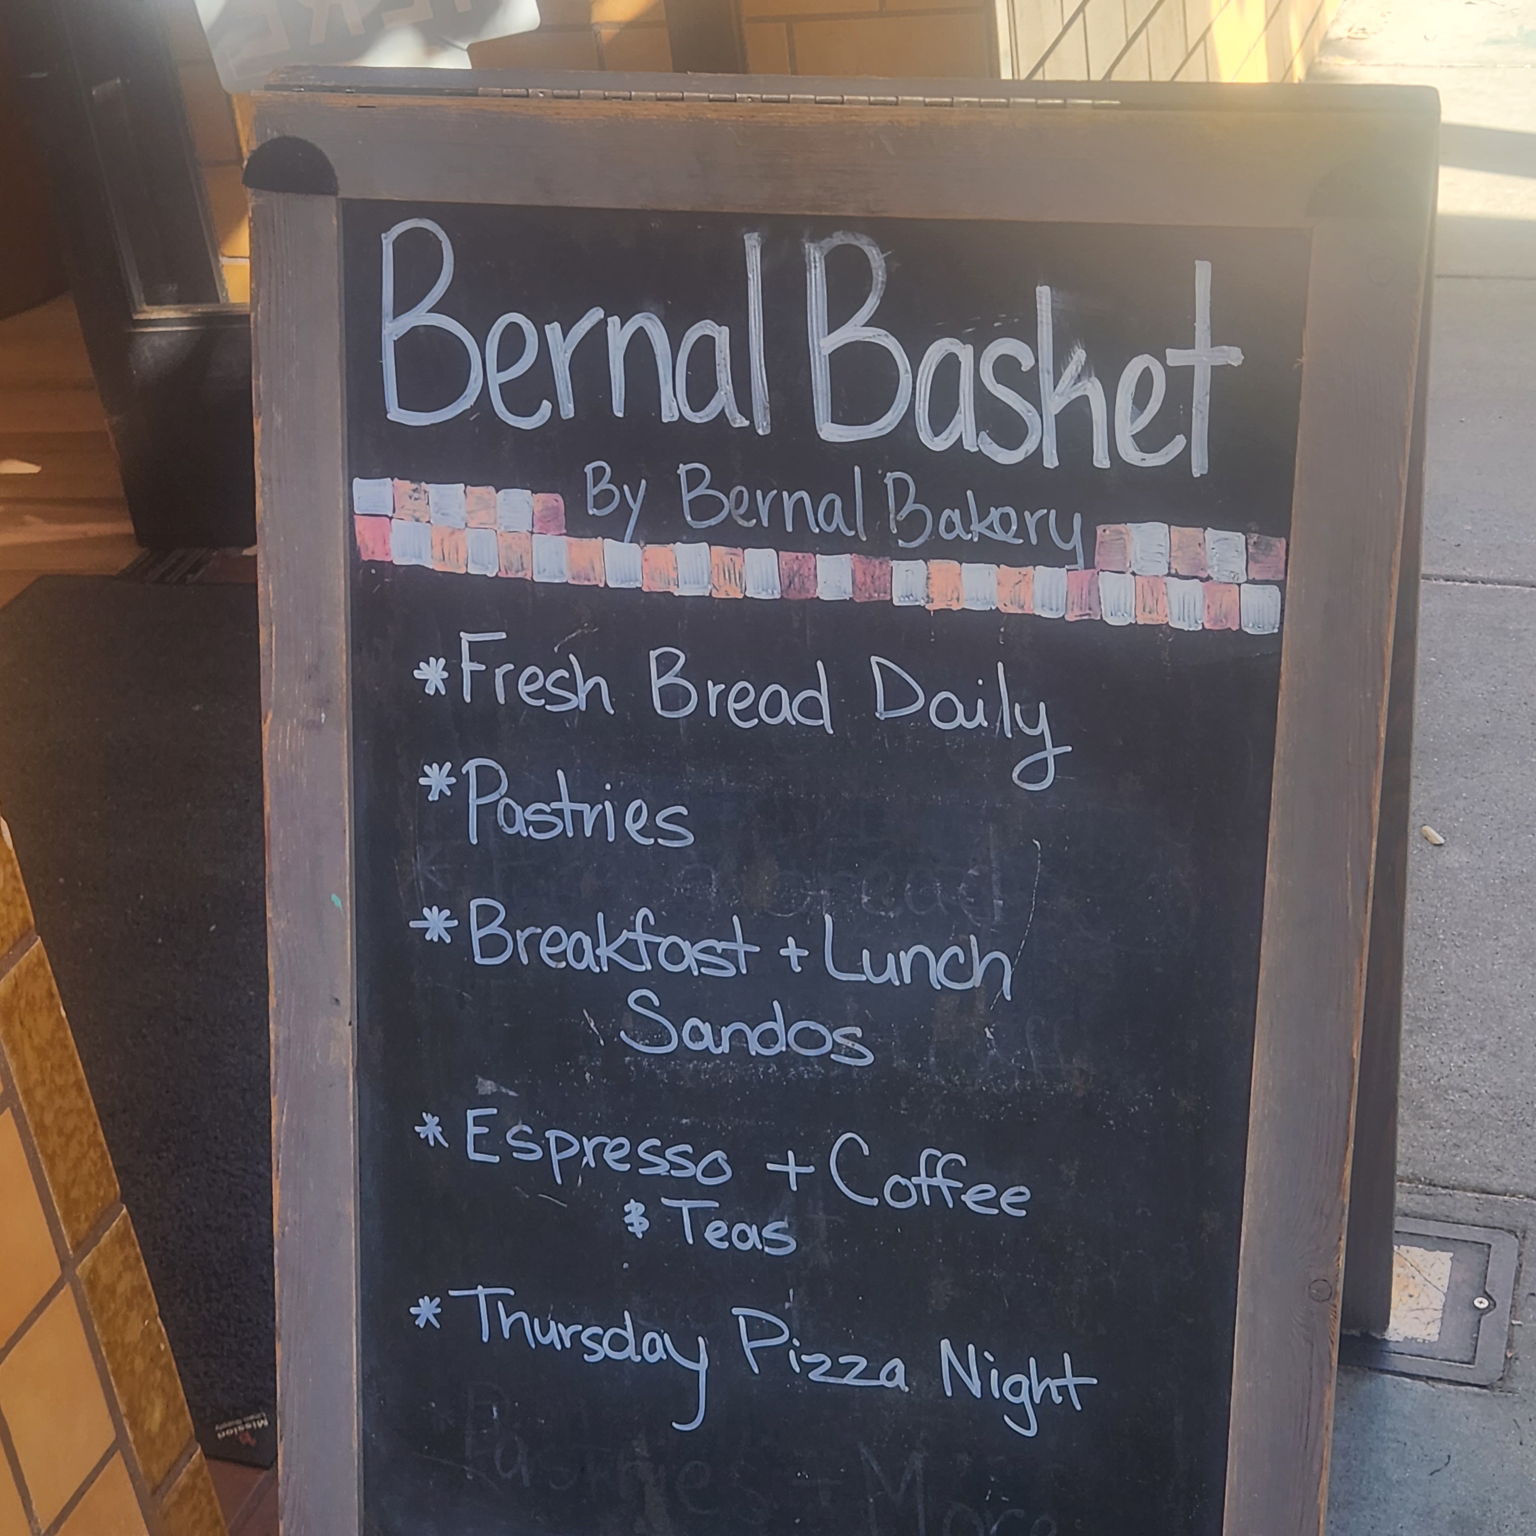 Bernal Basket
By Bernal Bakery
*Fresh Bread Daily
*Pastries
*Breakfast + Lunch
Sandos
*Espresso + Coffee
& Teas
*Thursday Pizza Night
Mission